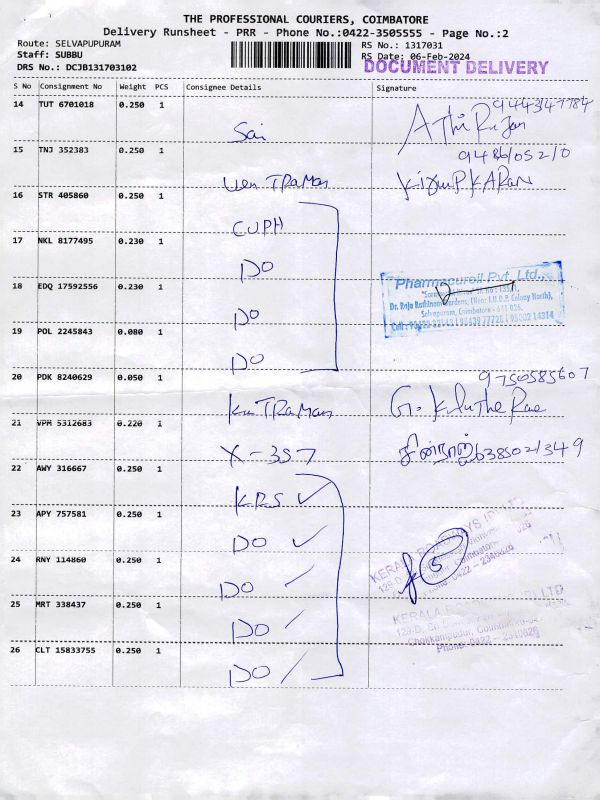 THE PROFESSIONAL COURIERS, COIMBATORE
Delivery Runsheet - PRR - Phone No.:0422-3505555 - Page No.:2
Route: SELVAPUPURAM
Staff: SUBBU
DRS No.: DCJB131703102
RS No.: 1317031
RS Date: 06-Feb-2024
DOCUMENT DELIVERY
S No Consignment No Weight PCS Consignee Details Signature
14 TUT 6701018 0.250 1 Sai
15 TNJ 352383 0.250 1
16 STR 405860 0.250 1 CUPH
17 NKL 8177495 0.230 1 DO
18 EDQ 17592556 0.230 1 DO
Pharmacuroil Pvt. Ltd.,
Dr. Raja Rathinam Gardens, (Near I.U.D.P. Colony North),
Selvapuram, Coimbatore - 641 026.
19 POL 2245843 0.080 1 DO
20 PDK 8240629 0.050 1 9750585607
21 VPM 5312683 0.220 1 X-357
22 AWY 316667 0.250 1 KRS ✓
23 APY 757581 0.250 1 DO ✓
24 RNY 114860 0.250 1 DO
25 MRT 338437 0.250 1 DO
26 CLT 15833755 0.250 1 DO